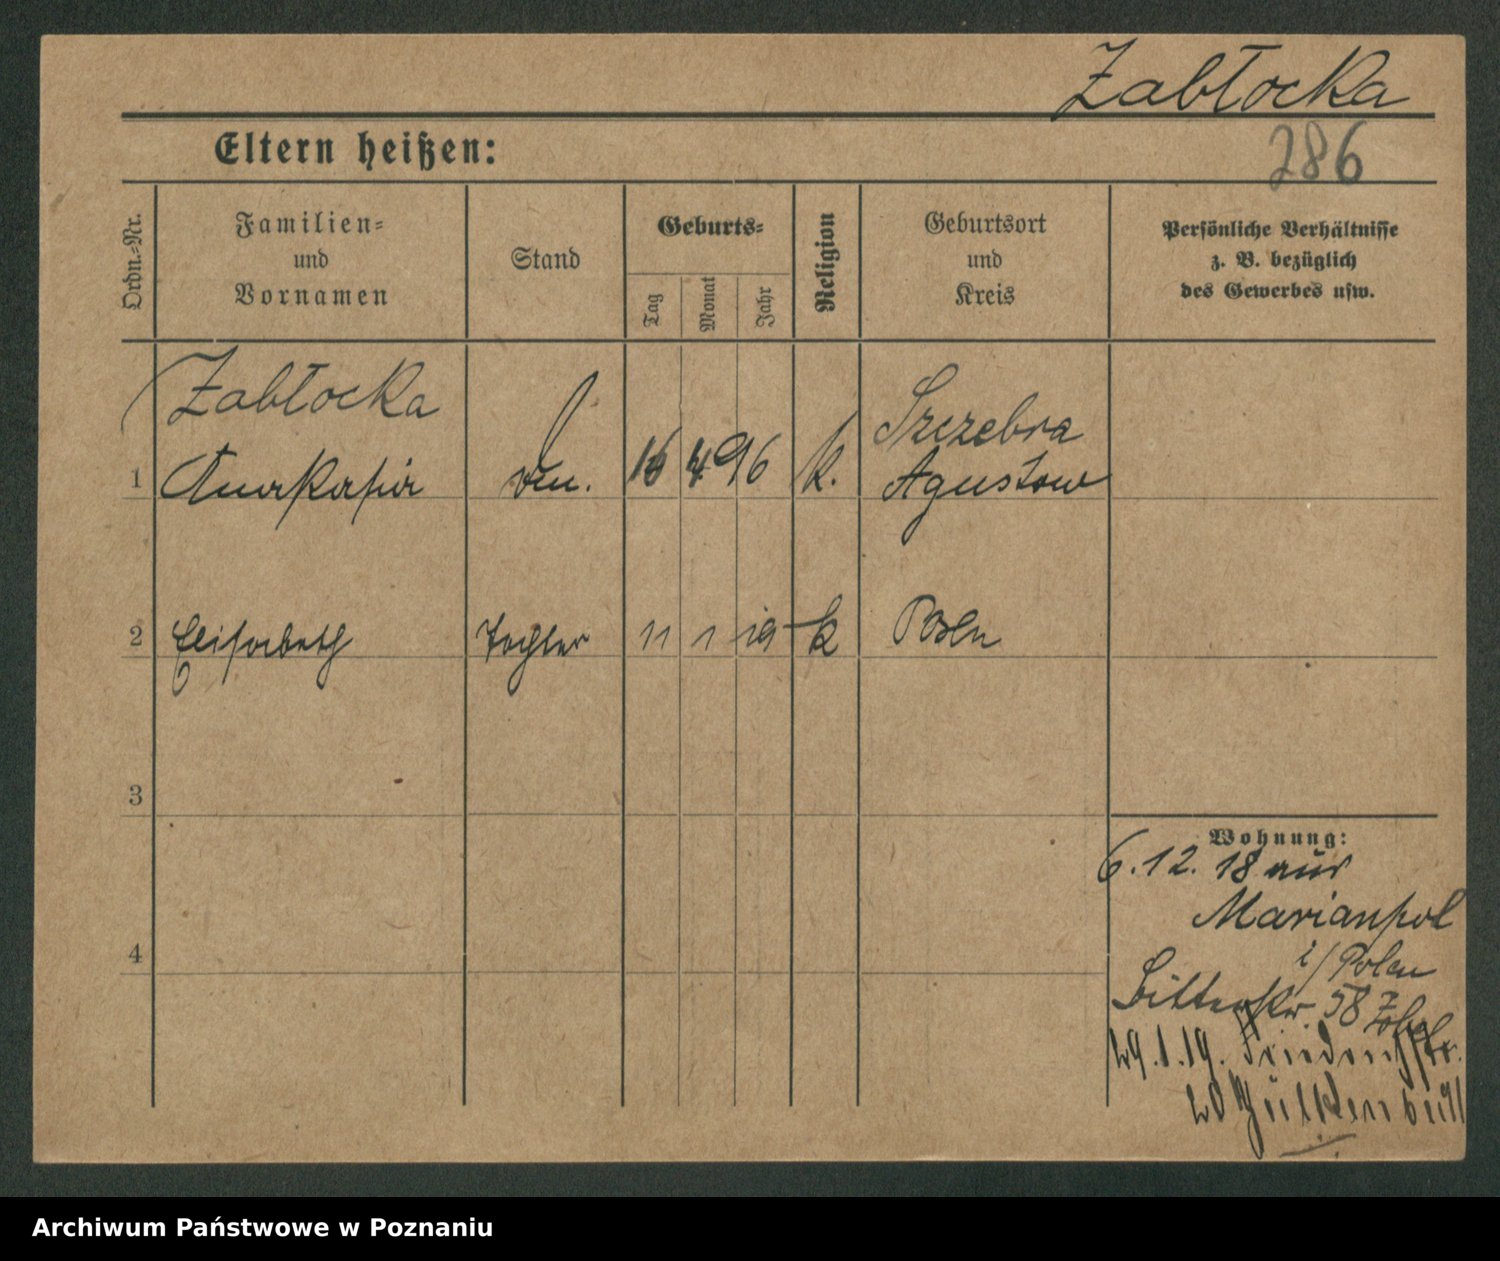 Zabłocka
Eltern heißen:
286
Ordn.=Nr.
Familien=
und
Vornamen
Stand
Geburts=
Tag
Monat
Jahr
Religion
Geburtsort
und
Kreis
Persönliche Verhältnisse
z. B. bezüglich
des Gewerbes usw.
Zabłocka Szczebra
1 16 4 96 k. Agustow
2 Elisabeth Tochter 11 1 19 k Posen
3
Wohnung:
6.12.18 aus
Marianpol
i/Polen
4
Bitterstr. 58
29.1.19. Friedenstr.
20
Archiwum Państwowe w Poznaniu